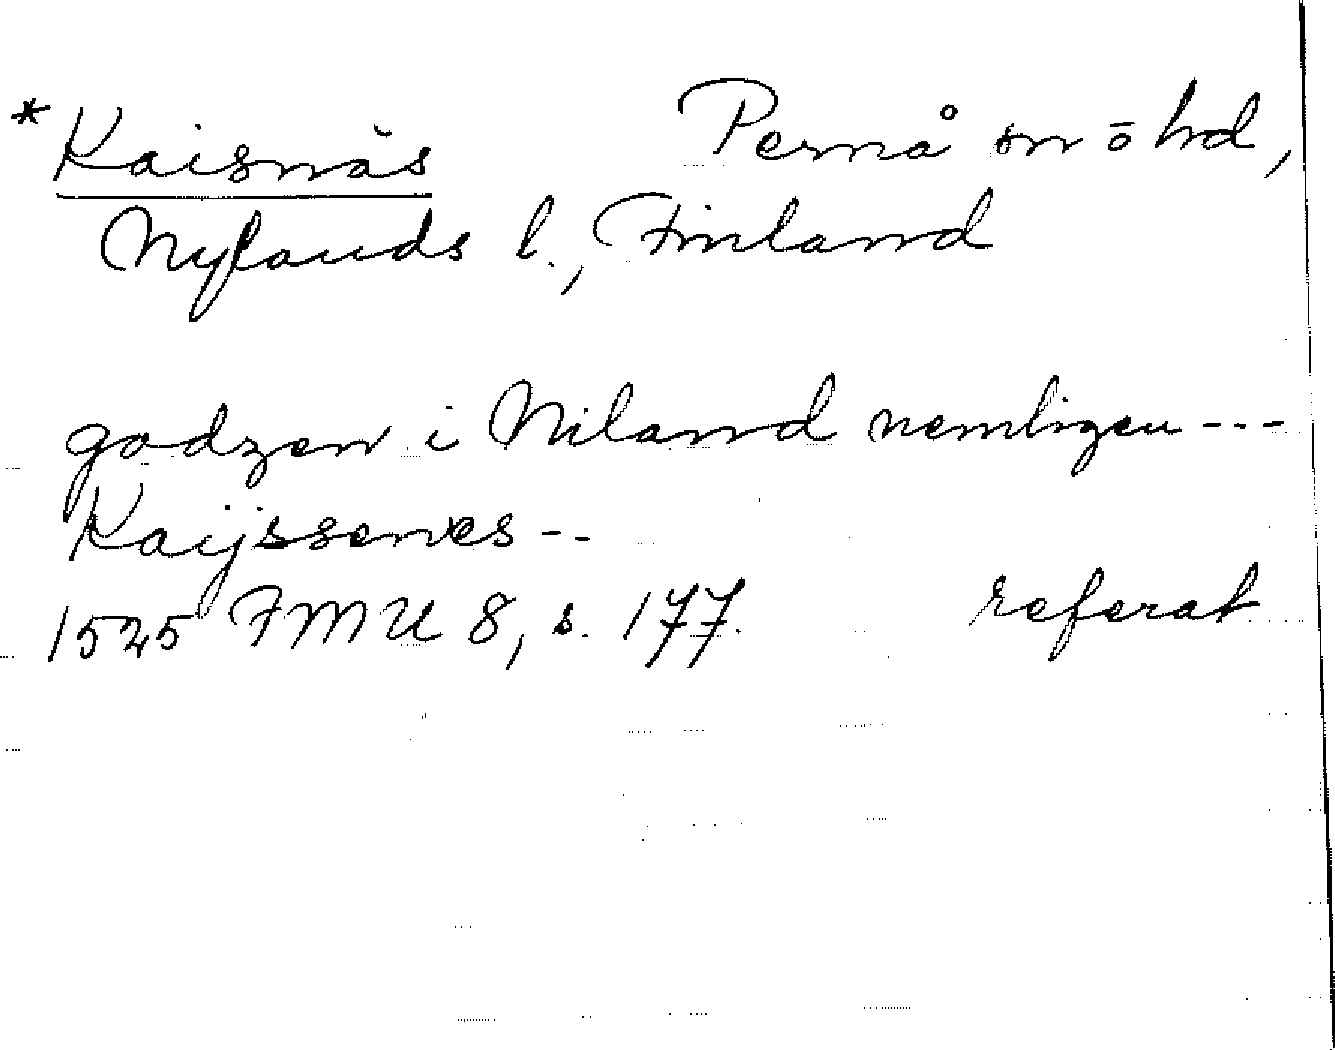 *Kaisnäs Pernå sn ō hd,
Nylands l., Finland
godzen i Niland nemligen ---
Kaijssenes --
1525 FMU 8, s. 177. referat